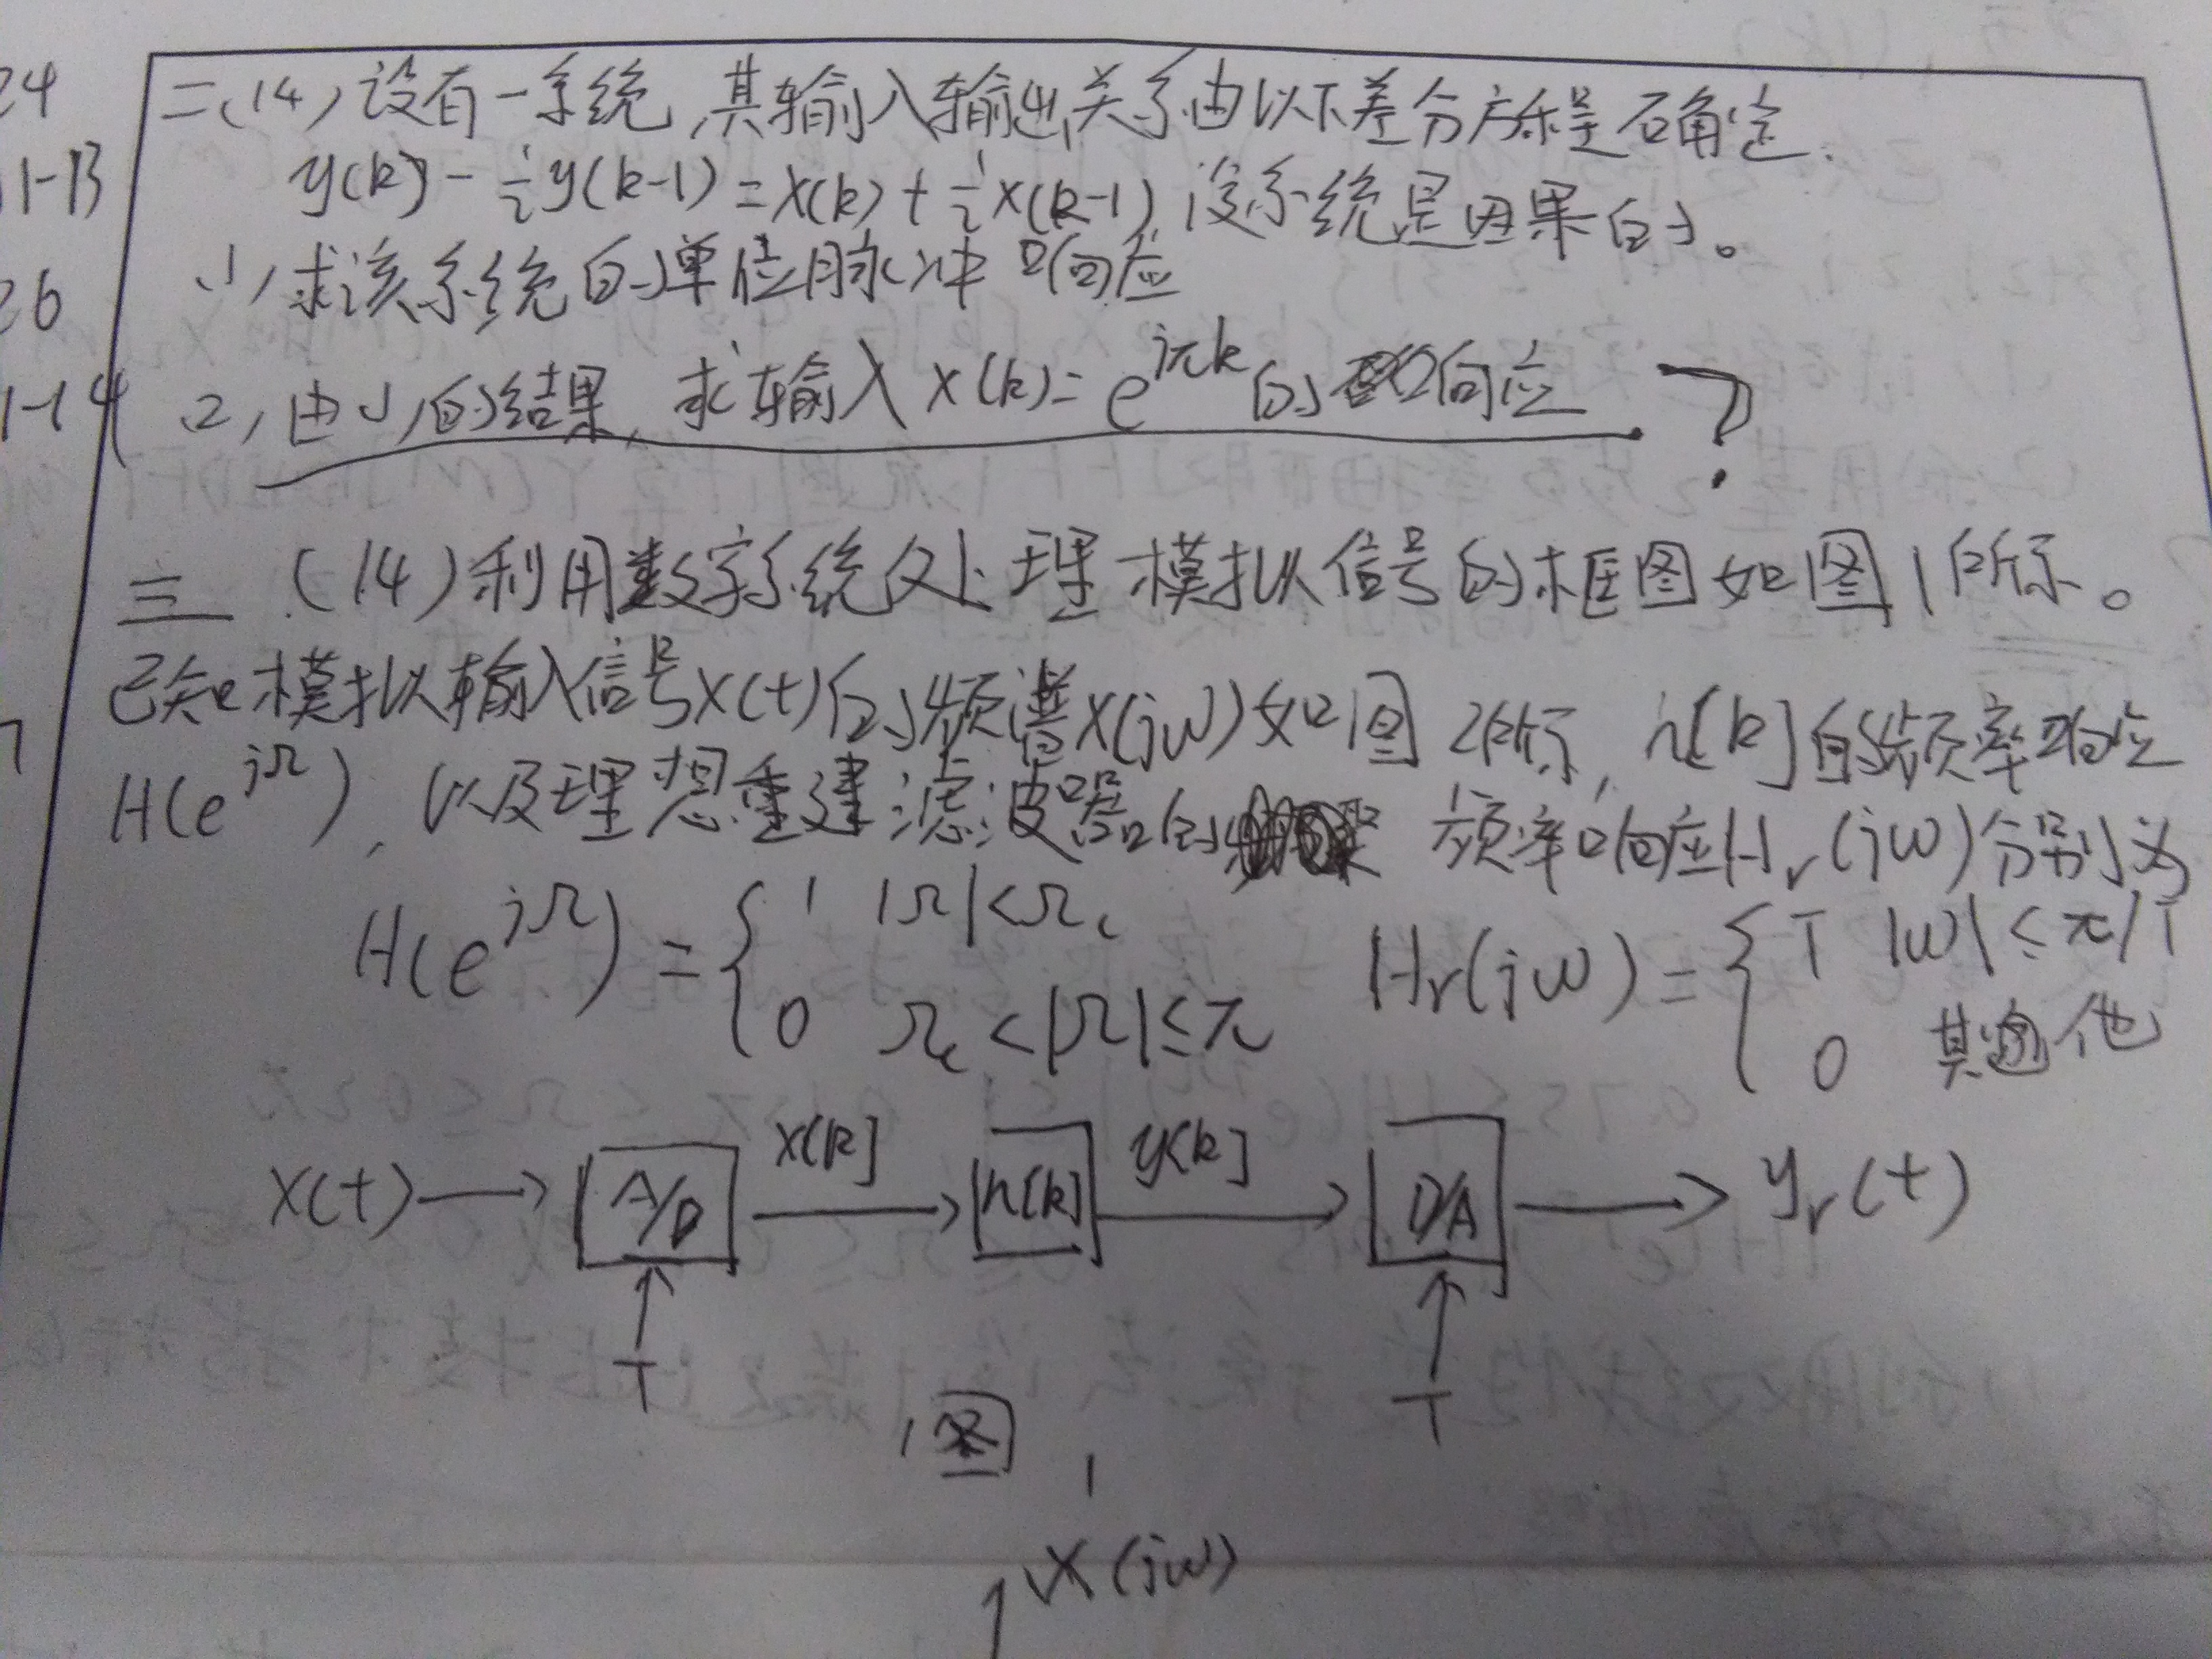 24
1-13
26
1-14
二、(14)设有一系统,其输入输出关系由以下差分方程确定.
y(k)-½y(k-1)=x(k)+½x(k-1),设系统是因果的。
(1)求该系统的单位脉冲响应
(2)由(1)的结果,求输入x(k)=e^{jπk}的响应. ?
三 (14)利用数字系统处理模拟信号的框图如图1所示。
已知模拟输入信号x(t)的频谱X(jω)如图2所示,h[k]的频率响应
H(e^{jΩ}),以及理想重建滤波器的 频率响应Hr(jω)分别为
H(e^{jΩ})={1 |Ω|<Ωc
0 Ωc<|Ω|≤π
Hr(jω)={T |ω|≤π/T
0 其他
x(t) → A/D x[k] → h[k] y[k] → D/A → yr(t)
T T
图1
X(jω)